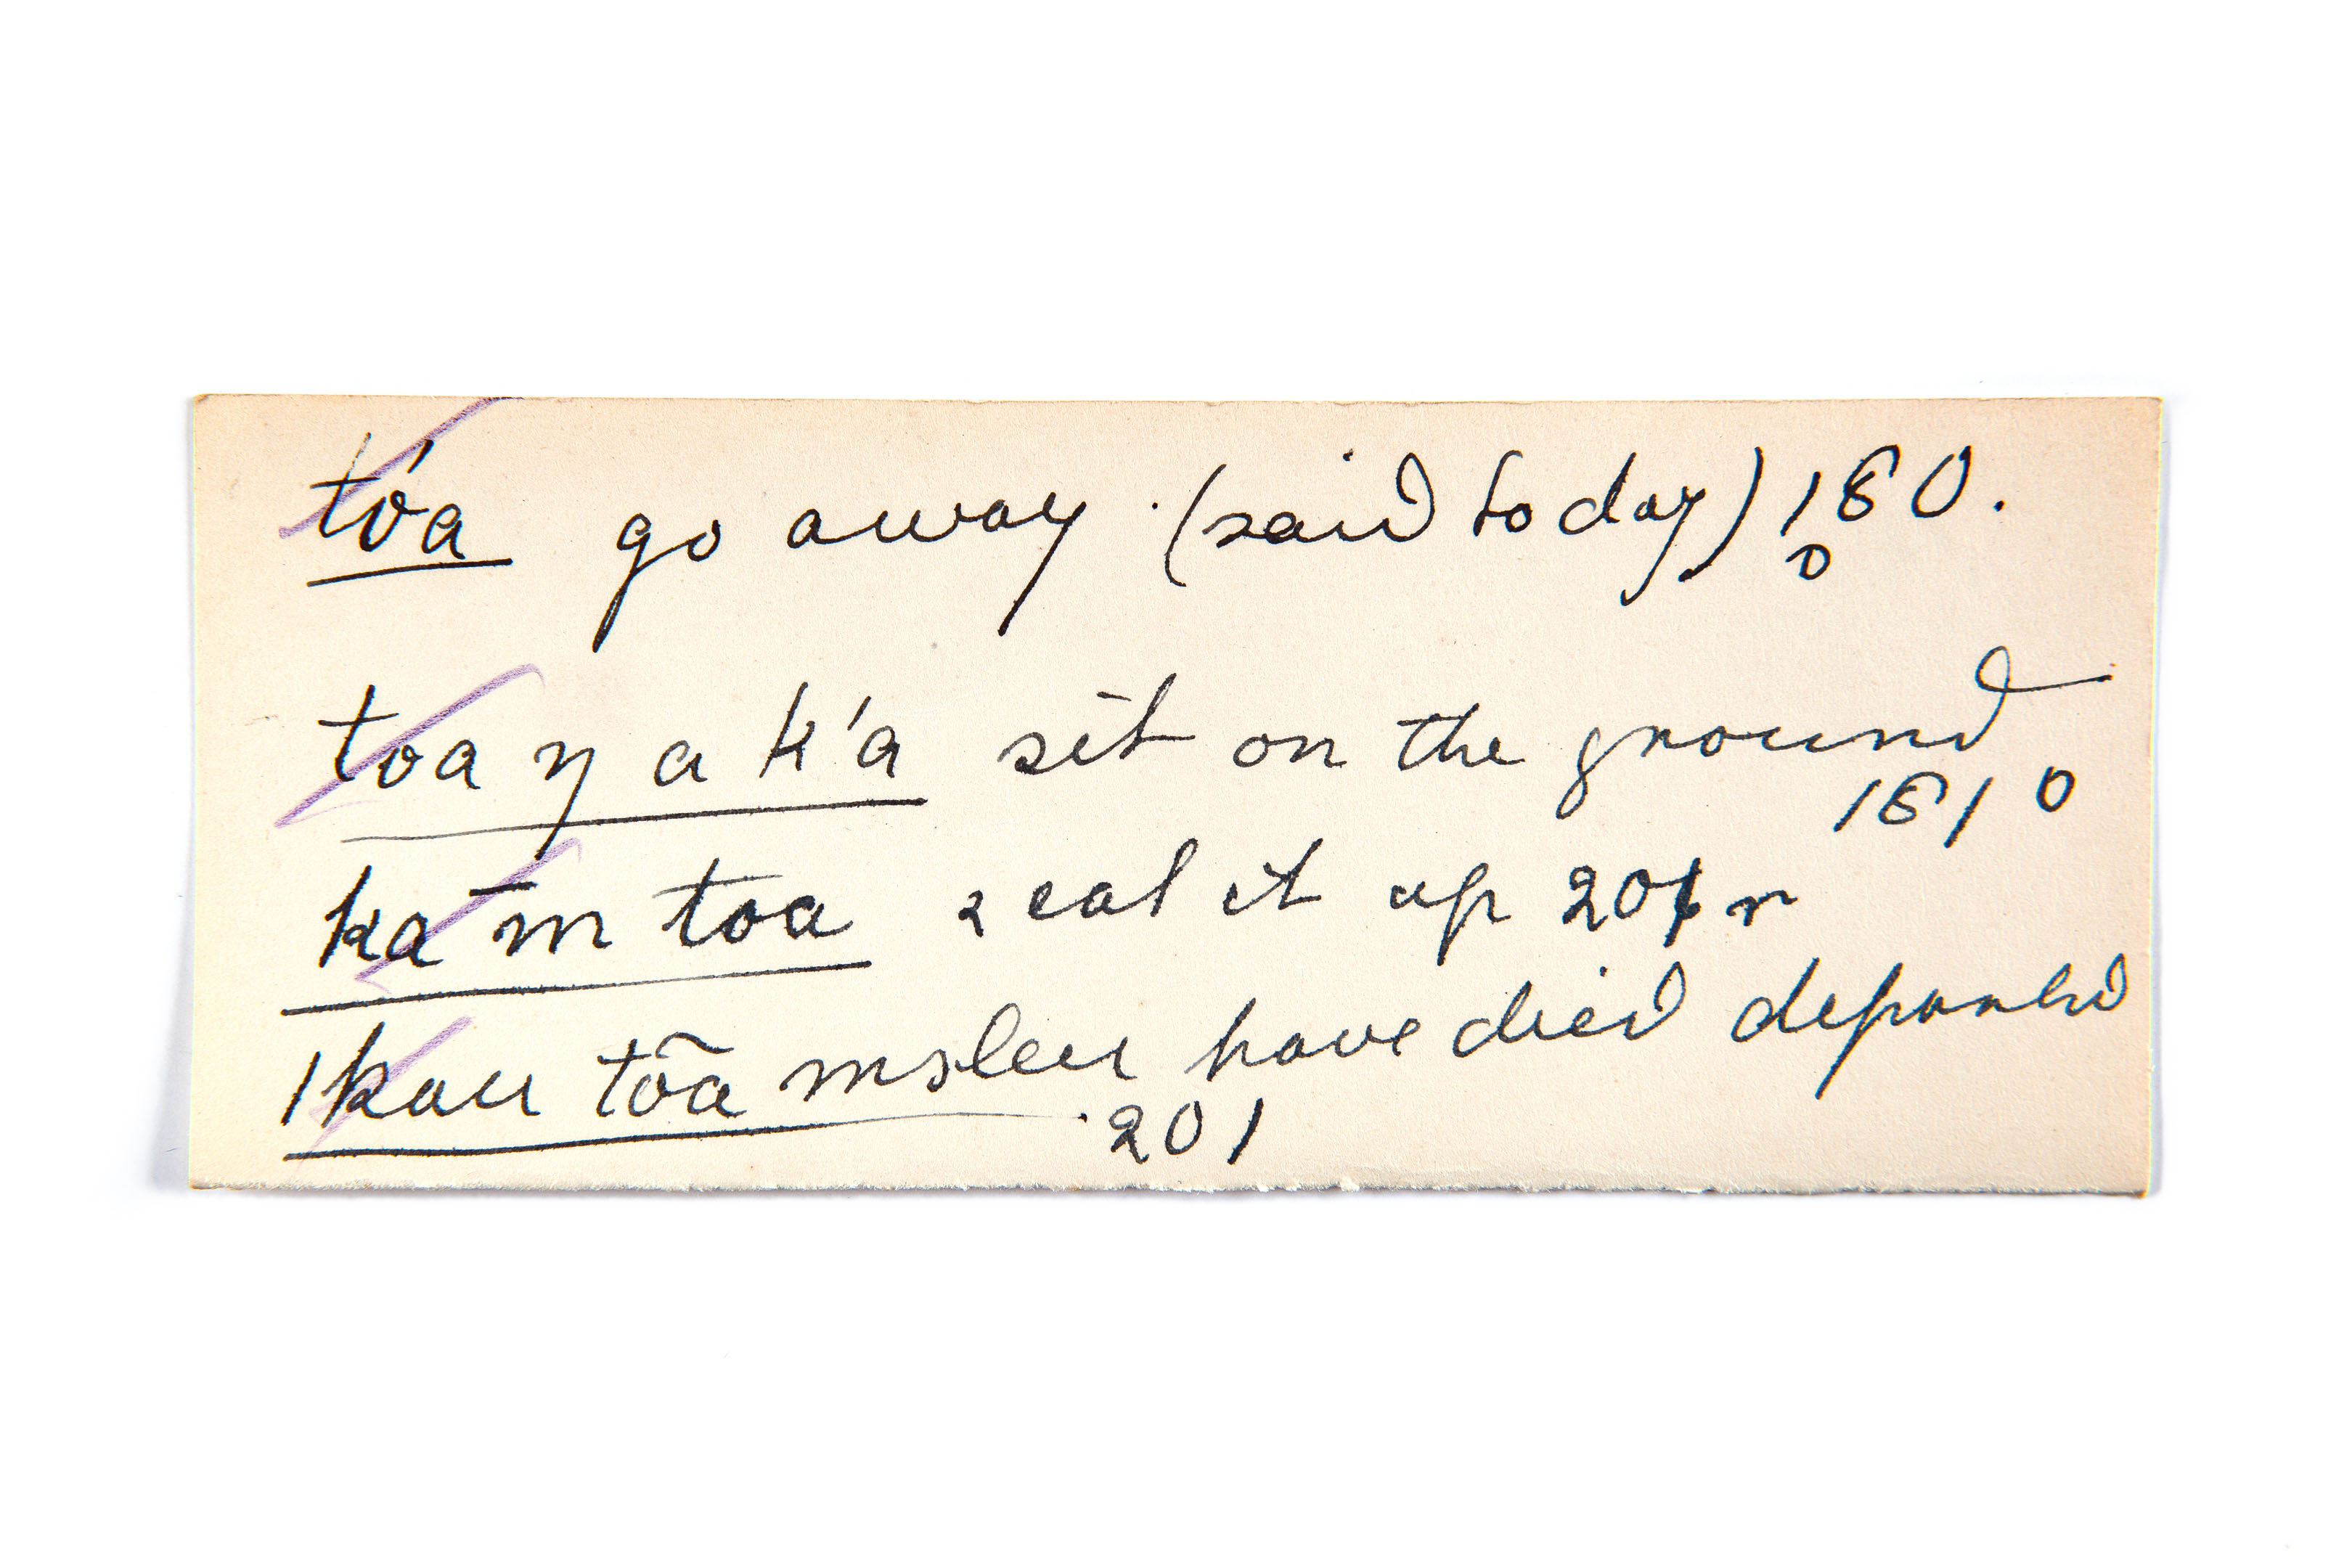 tóa go away. (said to day) 180.
o
toa η a k'a sit on the ground
181 o
ka m̄ toa eat it up 201 r
|kau tõa have died departed
201